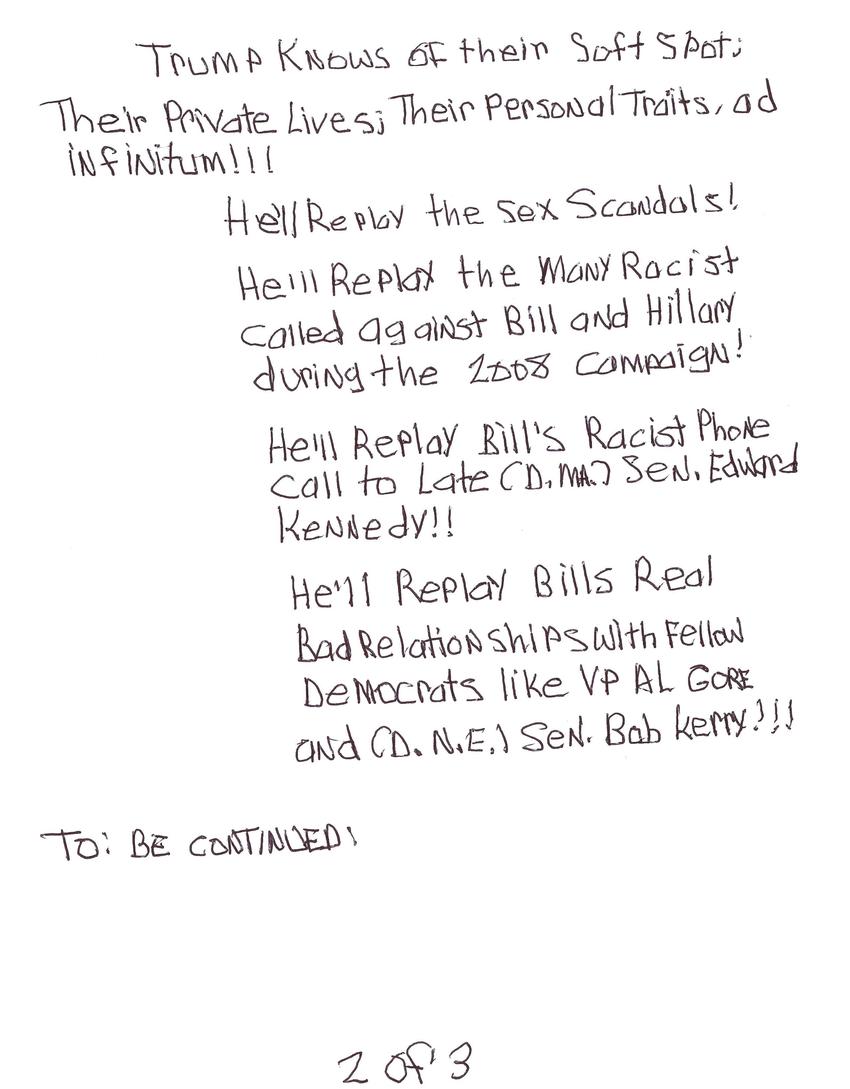 Trump Knows of their Soft Spot;
Their Private Lives; Their Personal Traits, ad
infinitum!!!
He'll Replay the sex Scandals!
He'll Replay the Many Racist
called against Bill and Hillary
during the 2008 campaign!
He'll Replay Bill's Racist Phone
call to Late (D, MA.) Sen. Edward
Kennedy!!
He'll Replay Bills Real
Bad Relationships with Fellow
Democrats like VP AL GORE
and (D. N.E.) Sen. Bob Kerry!!!
TO: BE CONTINUED;
2 of 3